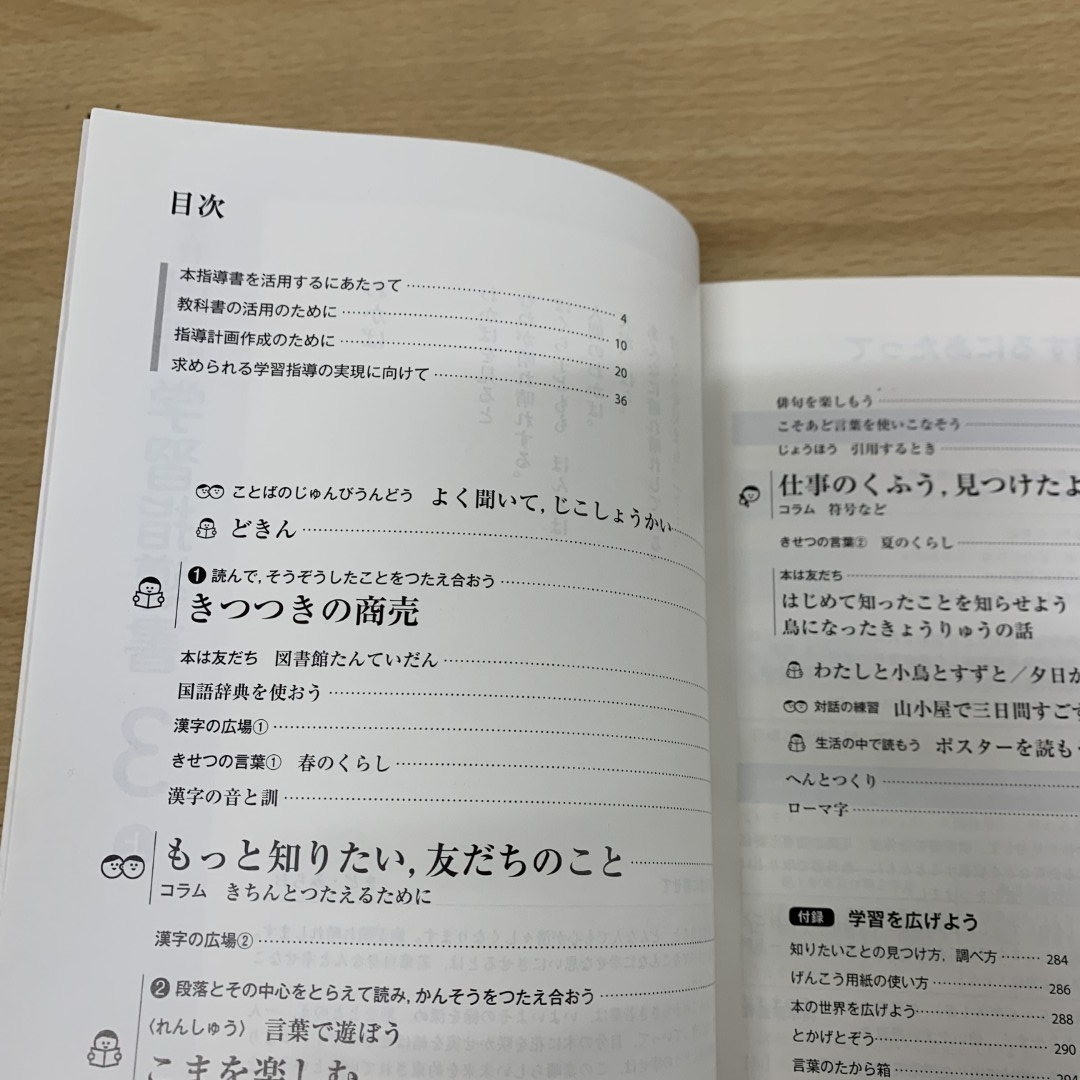 目次
本指導書を活用するにあたって 4
教科書の活用のために 10
指導計画作成のために 20
求められる学習指導の実現に向けて 36
ことばのじゅんびうんどう よく聞いて,じこしょうかい
どきん
❶ 読んで,そうぞうしたことをつたえ合おう
きつつきの商売
本は友だち 図書館たんていだん
国語辞典を使おう
漢字の広場①
きせつの言葉① 春のくらし
漢字の音と訓
もっと知りたい,友だちのこと
コラム きちんとつたえるために
漢字の広場②
❷ 段落とその中心をとらえて読み,かんそうをつたえ合おう
〈れんしゅう〉 言葉で遊ぼう
こまを楽しむ
俳句を楽しもう
こそあど言葉を使いこなそう
じょうほう 引用するとき
仕事のくふう,見つけたよ
コラム 符号など
きせつの言葉② 夏のくらし
本は友だち
はじめて知ったことを知らせよう
鳥になったきょうりゅうの話
わたしと小鳥とすずと/夕日が
対話の練習 山小屋で三日間すごす
生活の中で読もう ポスターを読もう
へんとつくり
ローマ字
付録 学習を広げよう
知りたいことの見つけ方,調べ方 284
げんこう用紙の使い方 286
本の世界を広げよう 288
とかげとぞう 290
言葉のたから箱 294